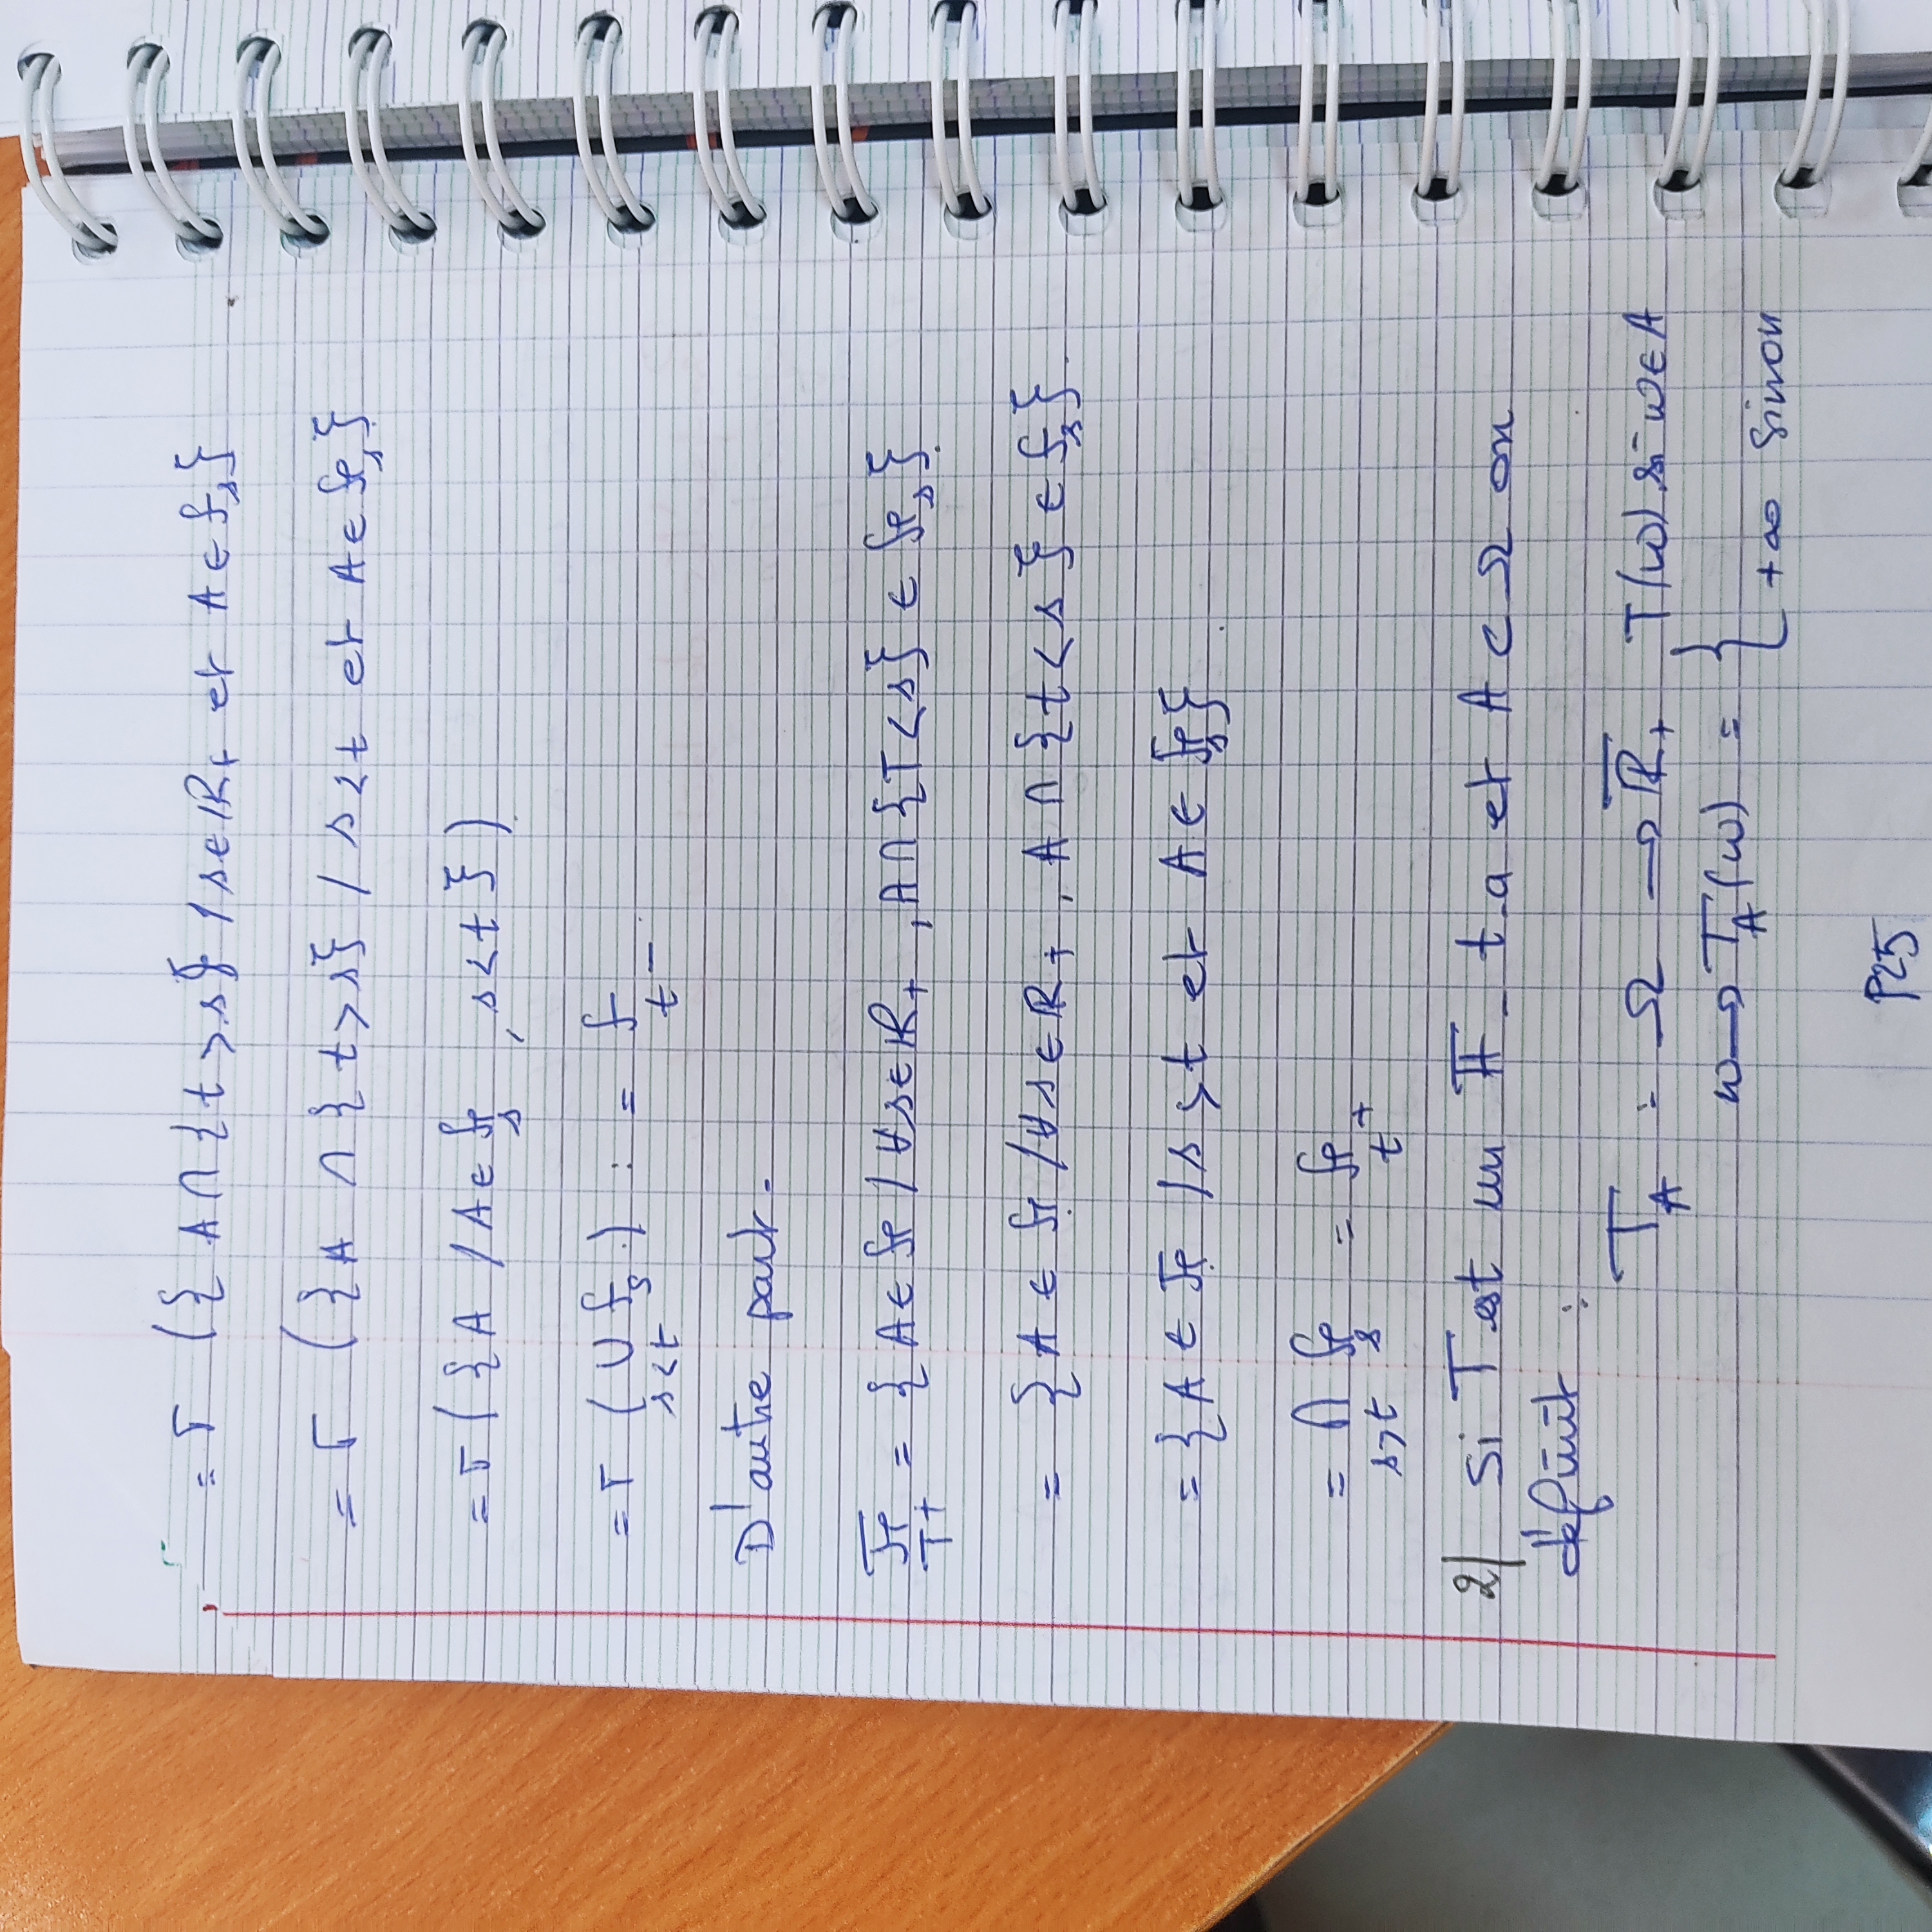 = σ ({ A ∩ {t > s} / s ∈ ℝ₊ et A ∈ ℱₛ}
= σ ({ A ∩ { t > s} / s < t et A ∈ ℱₛ}
= σ ( { A / A ∈ ℱₛ , s < t } )
= σ ( ∪_{s<t} ℱₛ ) := ℱ_{t⁻}
D'autre part.
ℱ_{T⁺} = { A ∈ ℱ / ∀ s ∈ ℝ₊ , A ∩ {T < s} ∈ ℱₛ}
= { A ∈ ℱ / ∀ s ∈ ℝ₊ , A ∩ { t < s } ∈ ℱₛ}
= { A ∈ ℱ / s > t et A ∈ ℱₛ}
= ∩_{s>t} ℱₛ = ℱ_{t⁺}
2) Si T est un 𝔽 - t.a et A ⊂ Ω on
définit :
T_A : Ω → ℝ̅₊ T(ω) si ω ∈ A
ω → T_A(ω) = {
+∞ sinon
P25